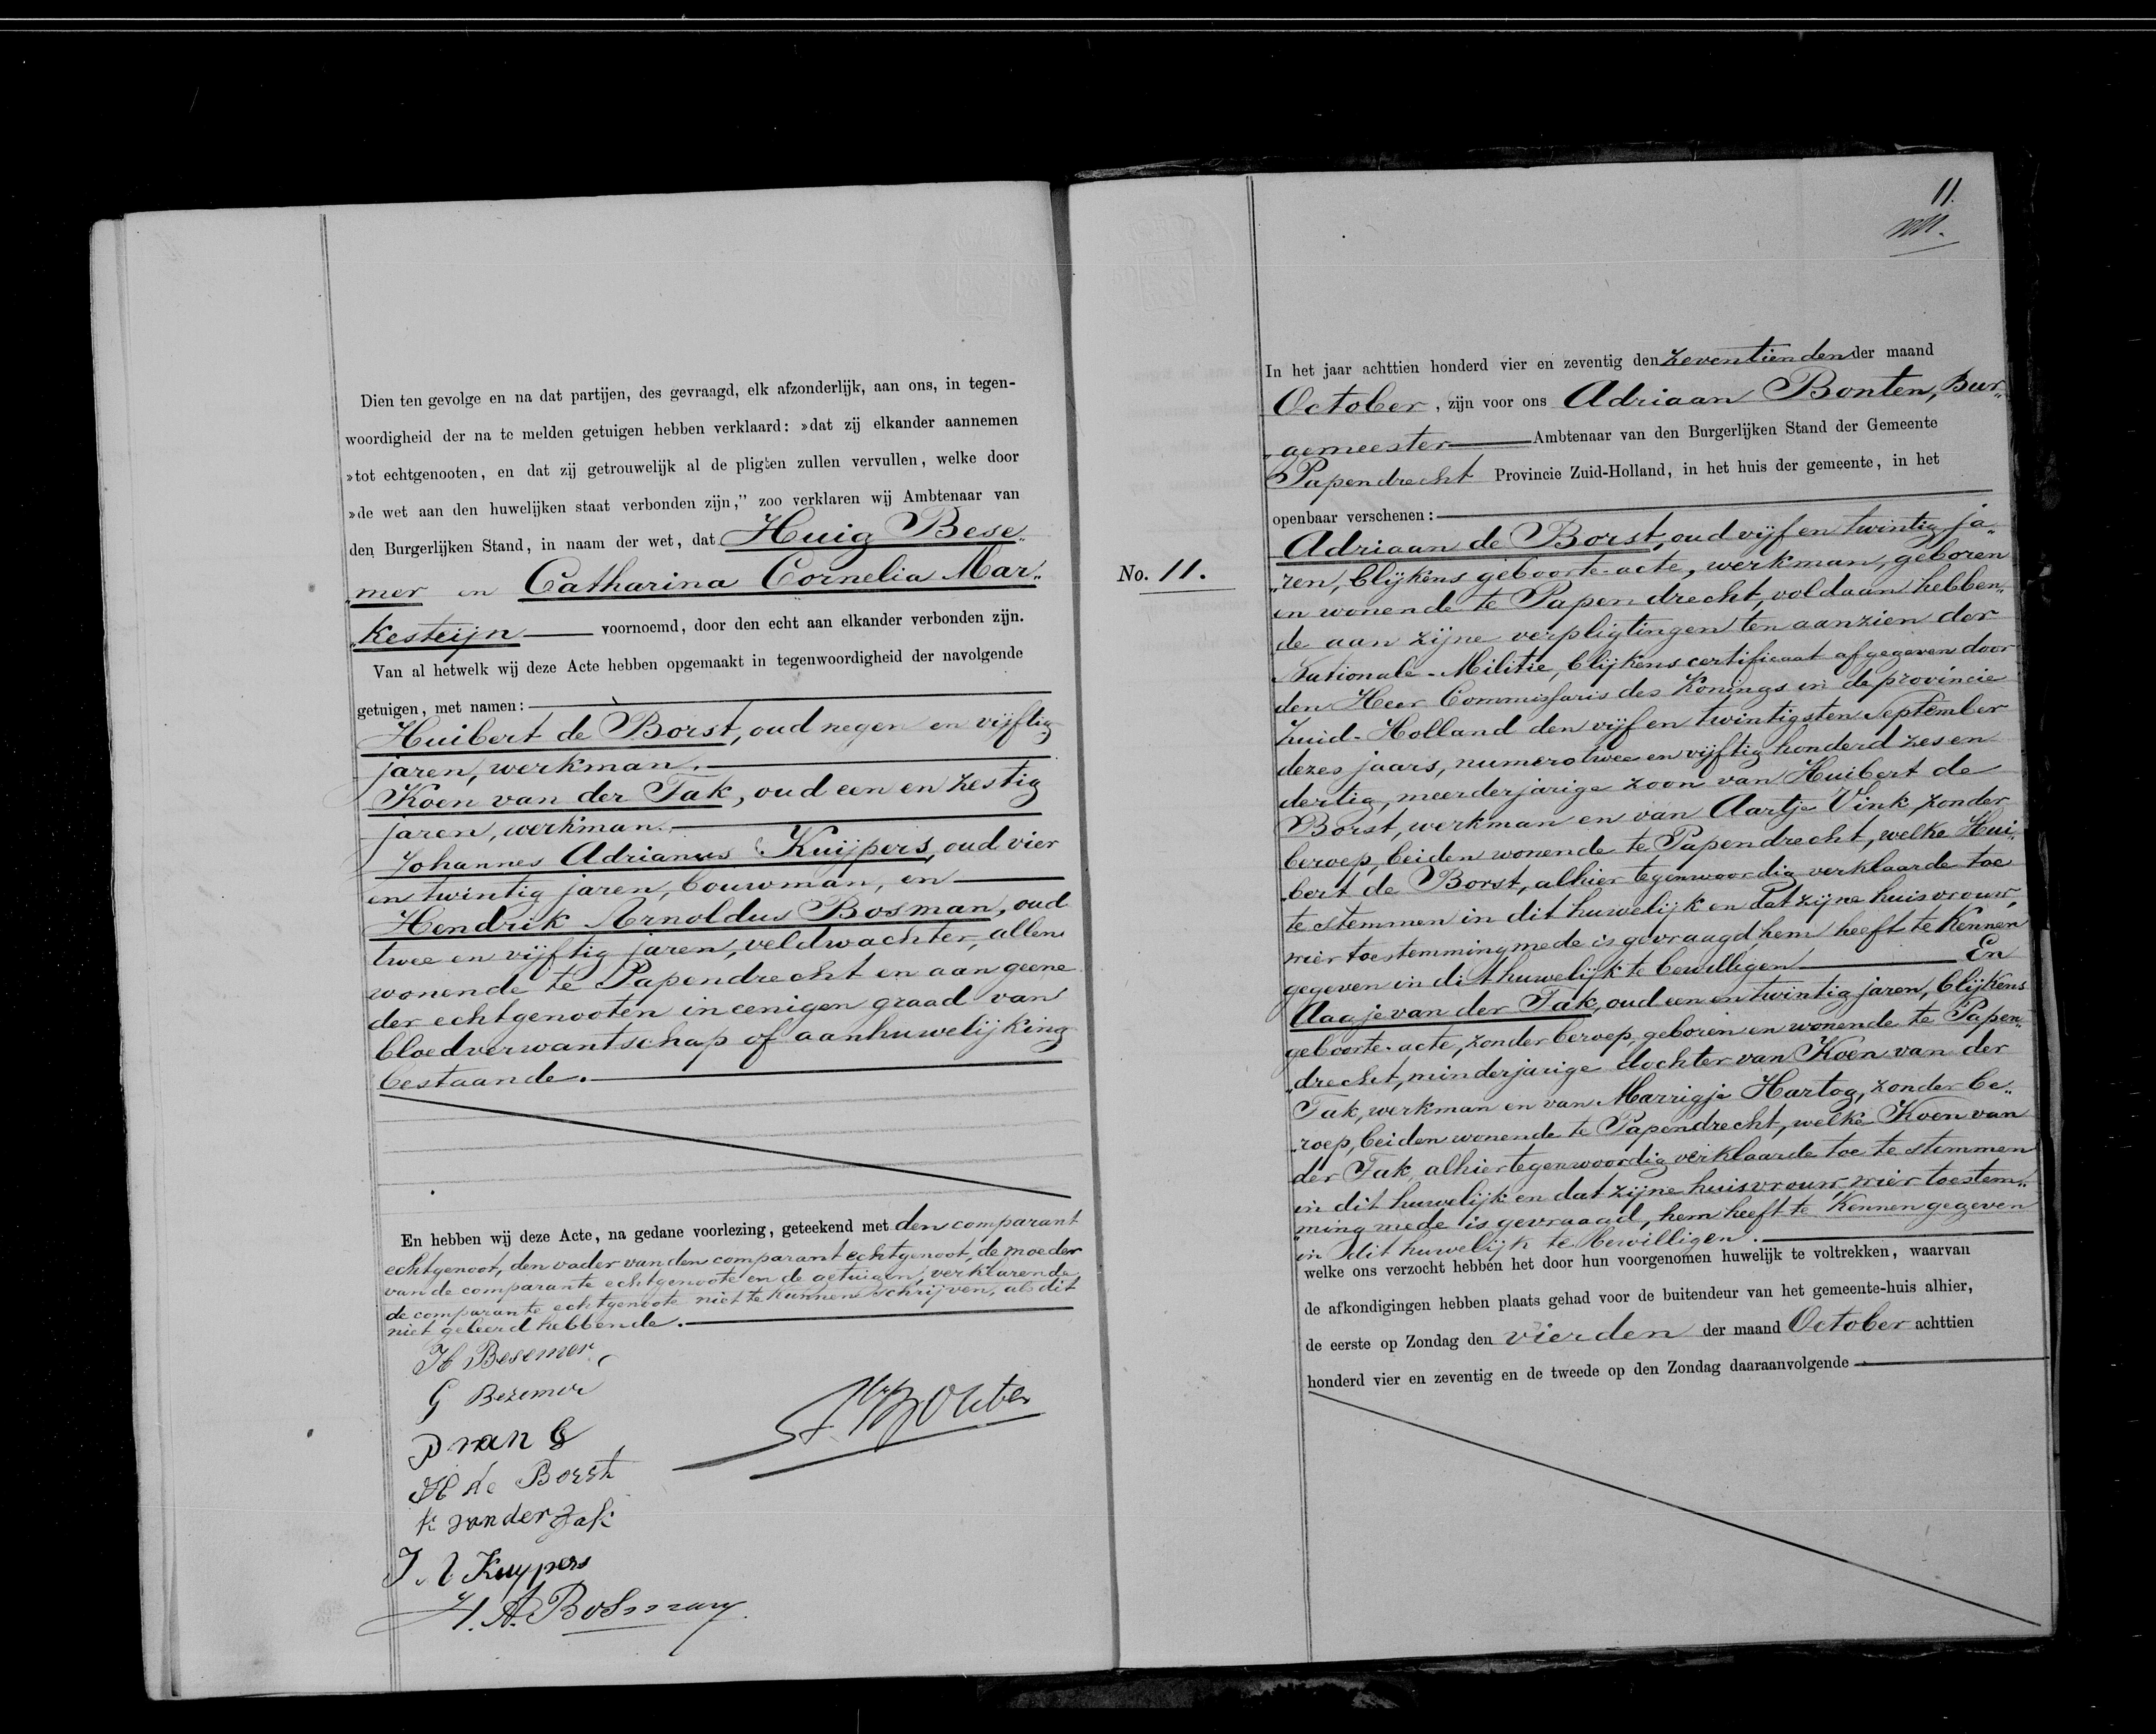 Dien ten gevolge en na dat partijen, des gevraagd, elk afzonderlijk, aan ons, in tegen-
woordigheid der na te melden getuigen hebben verklaard: »dat zij elkander aannemen
»tot echtgenooten, en dat zij getrouwelijk al de pligten zullen vervullen, welke door
»de wet aan den huwelijken staat verbonden zijn," zoo verklaren wij Ambtenaar van
den Burgerlijken Stand, in naam der wet, dat Huig Bese„
„mer en Catharina Cornelia Mar„
„kesteijn voornoemd, door den echt aan elkander verbonden zijn.
Van al hetwelk wij deze Acte hebben opgemaakt in tegenwoordigheid der navolgende
getuigen, met namen:
Huibert de Borst, oud negen en vijftig
jaren, werkman.
Koen van der Tak, oud een en zestig
jaren, werkman.
Johannes Adrianus Kuijpers, oud vier
en twintig jaren, bouwman, en
Hendrik Arnoldus Bosman, oud
twee en vijftig jaren, veldwachter, allen
wonende te Papendrecht en aan geene
der echtgenooten in eenigen graad van
bloedverwantschap of aanhuwelijking
bestaande.
En hebben wij deze Acte, na gedane voorlezing, geteekend met den comparant
echtgenoot, den vader van den comparant echtgenoot, de moeder
van de comparante echtgenoote en de getuigen, verklarende
de comparante echtgenoote niet te kunnen schrijven, als dit
niet geleerd hebbende.
H Besemer
G Bezemer
P van G
H de Borst
K van der Tak
J A Kuypers
H. A. Bosman
A Bonten
11.
No. 11.
In het jaar achttien honderd vier en zeventig den zeventienden der maand
October, zijn voor ons Adriaan Bonten, Bur„
„gemeester Ambtenaar van den Burgerlijken Stand der Gemeente
Papendrecht Provincie Zuid-Holland, in het huis der gemeente, in het
openbaar verschenen:
Adriaan de Borst, oud vijf en twintig ja„
„ren, blijkens geboorte-acte, werkman, geboren
en wonende te Papendrecht, voldaan hebben„
de aan zijne verpligtingen ten aanzien der
Nationale-Militie, blijkens certificaat afgegeven door
den Heer Commissaris des Konings in de provincie
Zuid-Holland den vijf en twintigsten September
dezes jaars, numero twee en vijftig honderd zes en
dertig, meerderjarige zoon van Huibert de
Borst, werkman en van Aartje Vink, zonder
beroep, beiden wonende te Papendrecht, welke Hui„
„bert de Borst, alhier tegenwoordig verklaarde toe
te stemmen in dit huwelijk en dat zijne huisvrouw,
wier toestemming mede is gevraagd, hem heeft te kennen
gegeven in dit huwelijk te bewilligen En
Aagje van der Tak, oud een en twintig jaren, blijkens
geboorte-acte, zonder beroep, geboren en wonende te Papen„
„drecht, minderjarige dochter van Koen van der
Tak, werkman en van Marrigje Hartog, zonder be„
„roep, beiden wonende te Papendrecht, welke Koen van
der Tak, alhier tegenwoordig verklaarde toe te stemmen
in dit huwelijk en dat zijne huisvrouw, wier toestem„
„ming mede is gevraagd, hem heeft te kennen gegeven
in dit huwelijk te bewilligen.
welke ons verzocht hebben het door hun voorgenomen huwelijk te voltrekken, waarvan
de afkondigingen hebben plaats gehad voor de buitendeur van het gemeente-huis alhier,
de eerste op Zondag den vierden der maand October achttien
honderd vier en zeventig en de tweede op den Zondag daaraanvolgende